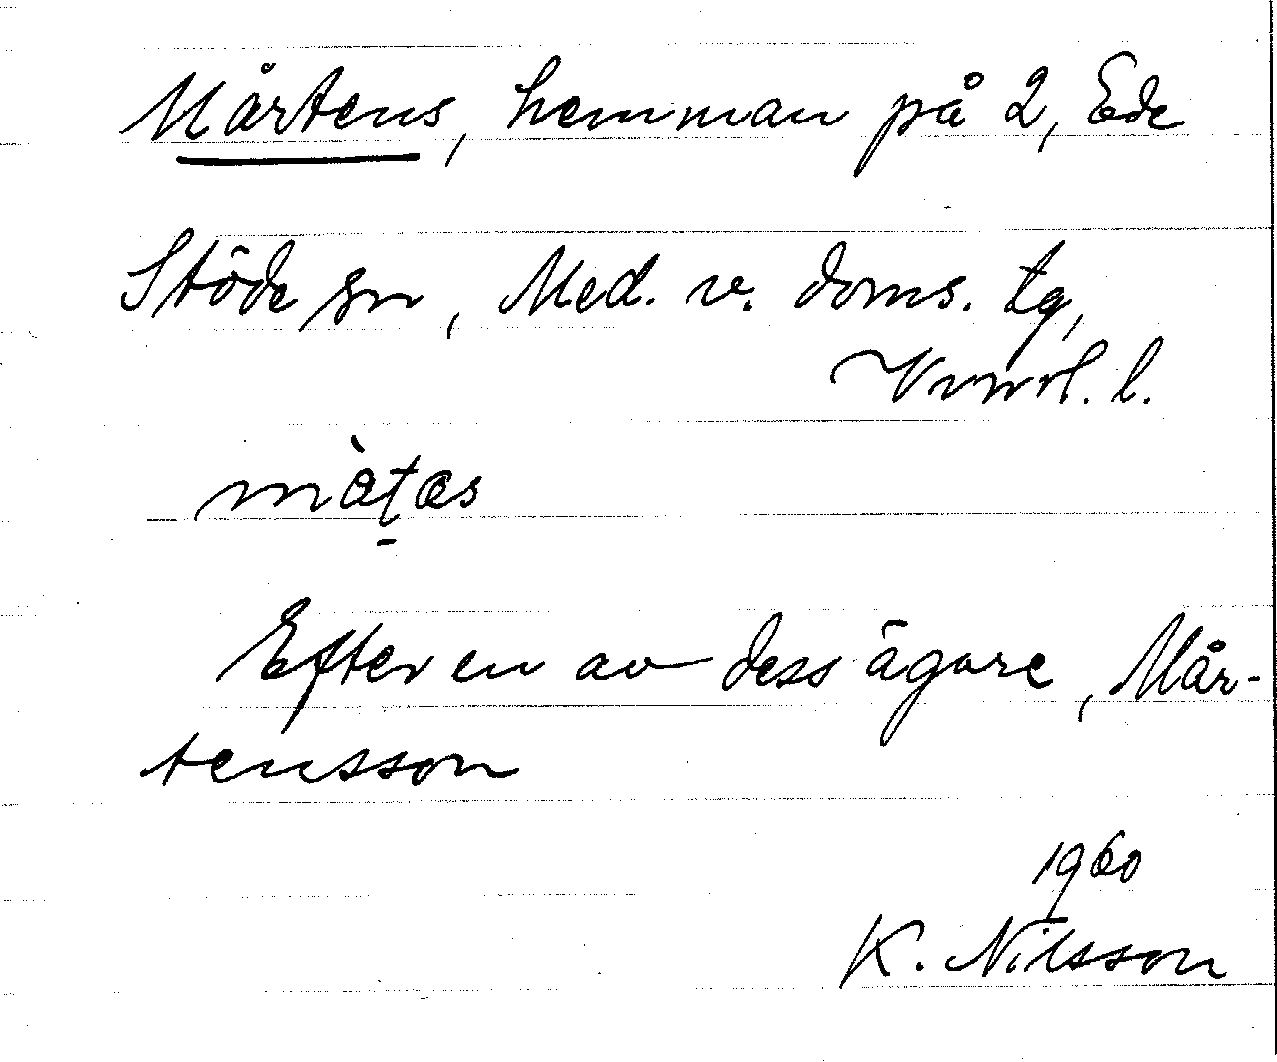 Mårtens, hemman på 2, Ede
Stöde sn, Med. v. doms. tg,
Vnrl. l.
màt̠as
Efter en av dess ägare, Mår-
tensson
1960
K. Nilsson